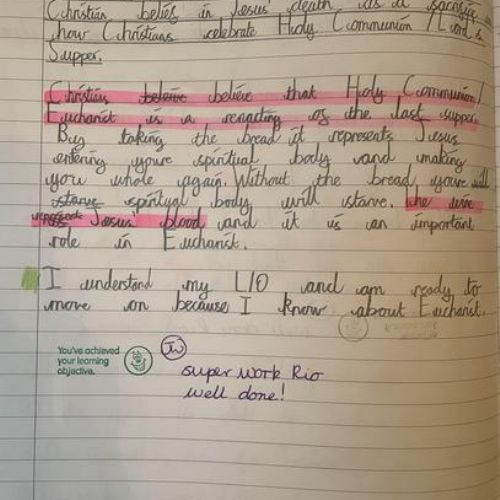 Christian beliefs in Jesus' death as a sacrifice
how Christians celebrate Holy Communion / Lord's
Supper.
Christians believe that Holy Communion/
Eucharist is a renacting of the last supper.
Buy taking the bread it represents Jesus
entering youre spiritual body and making
you whole again. Without the bread youre will
starve spiritual body will starve. the wine
represent Jesus' blood and it is an important
role in Eucharist.
I understand my L/O and am ready to
move on because I know about Eucharist.
You've achieved
your learning
objective.
super work Rio
well done!